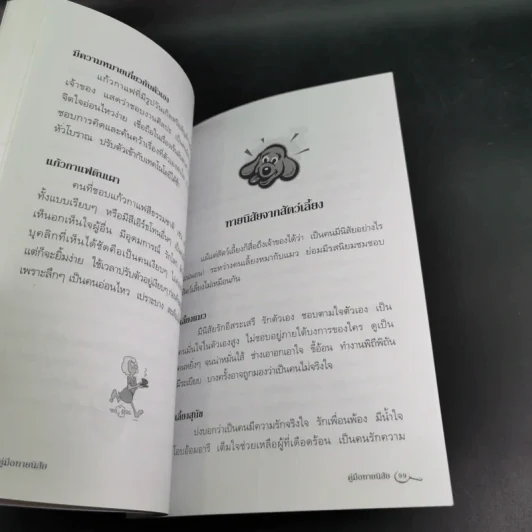 มีความหมายเกี่ยวกับตัวเอง
แก้วกาแฟที่มีรูปวันเกิดหรือ
เจ้าของ แสดงว่าชอบงานศิลปะ
จิตใจอ่อนไหวง่าย เชื่อถือในเรื่อง
ชอบการคิดและค้นคว้าเรื่องที่
หัวโบราณ ปรับตัวเข้ากับเทคโนโลยีได้
แก้วกาแฟดินเผา
คนที่ชอบแก้วกาแฟสีธรรมชาติ
ทั้งแบบเรียบๆ หรือมีสีเอิร์ธโทนอื่นๆ
เห็นอกเห็นใจผู้อื่น มีอุดมการณ์ รัก
บุคลิกที่เห็นได้ชัดคือเป็นคนเงียบๆ
แต่ก็จะยิ้มง่าย ใช้เวลาปรับตัวอยู่เงียบๆ
เพราะลึกๆ เป็นคนอ่อนไหว เปราะบาง
คู่มือทายนิสัย
ทายนิสัยจากสัตว์เลี้ยง
แม้แต่สัตว์เลี้ยงก็สื่อถึงเจ้าของได้ว่า เป็นคนมีนิสัยอย่างไร
ระหว่างคนเลี้ยงหมากับแมว ย่อมมีรสนิยมชมชอบ
สัตว์เลี้ยงไม่เหมือนกัน
เลี้ยงแมว
มีนิสัยรักอิสระเสรี รักตัวเอง ชอบตามใจตัวเอง เป็น
คนมั่นใจในตัวเองสูง ไม่ชอบอยู่ภายใต้บงการของใคร ดูเป็น
คนหยิ่งๆ จนน่าหมั่นไส้ ช่างเอาอกเอาใจ ขี้อ้อน ทำงานพิถีพิถัน
มีระเบียบ บางครั้งอาจถูกมองว่าเป็นคนไม่จริงใจ
เลี้ยงสุนัข
บ่งบอกว่าเป็นคนมีความรักจริงใจ รักเพื่อนพ้อง มีน้ำใจ
โอบอ้อมอารี เต็มใจช่วยเหลือผู้ที่เดือดร้อน เป็นคนรักความ
คู่มือทายนิสัย 99